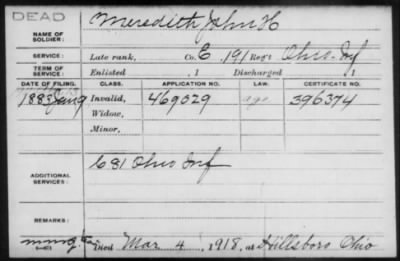 DEAD
NAME OF SOLDIER: Meredith John H
SERVICE: Late rank, Co. E, 191 Reg't Ohio Inf
TERM OF SERVICE: Enlisted , 1 Discharged , 1
DATE OF FILING. CLASS. APPLICATION NO. LAW. CERTIFICATE NO.
1883 Invalid, 469029 396374
Widow,
Minor,
ADDITIONAL SERVICES: C 81 Ohio Inf
REMARKS:
Died Mar 4, 1918, at Hillsboro Ohio